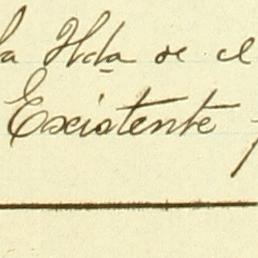 la Hda de el
Existente